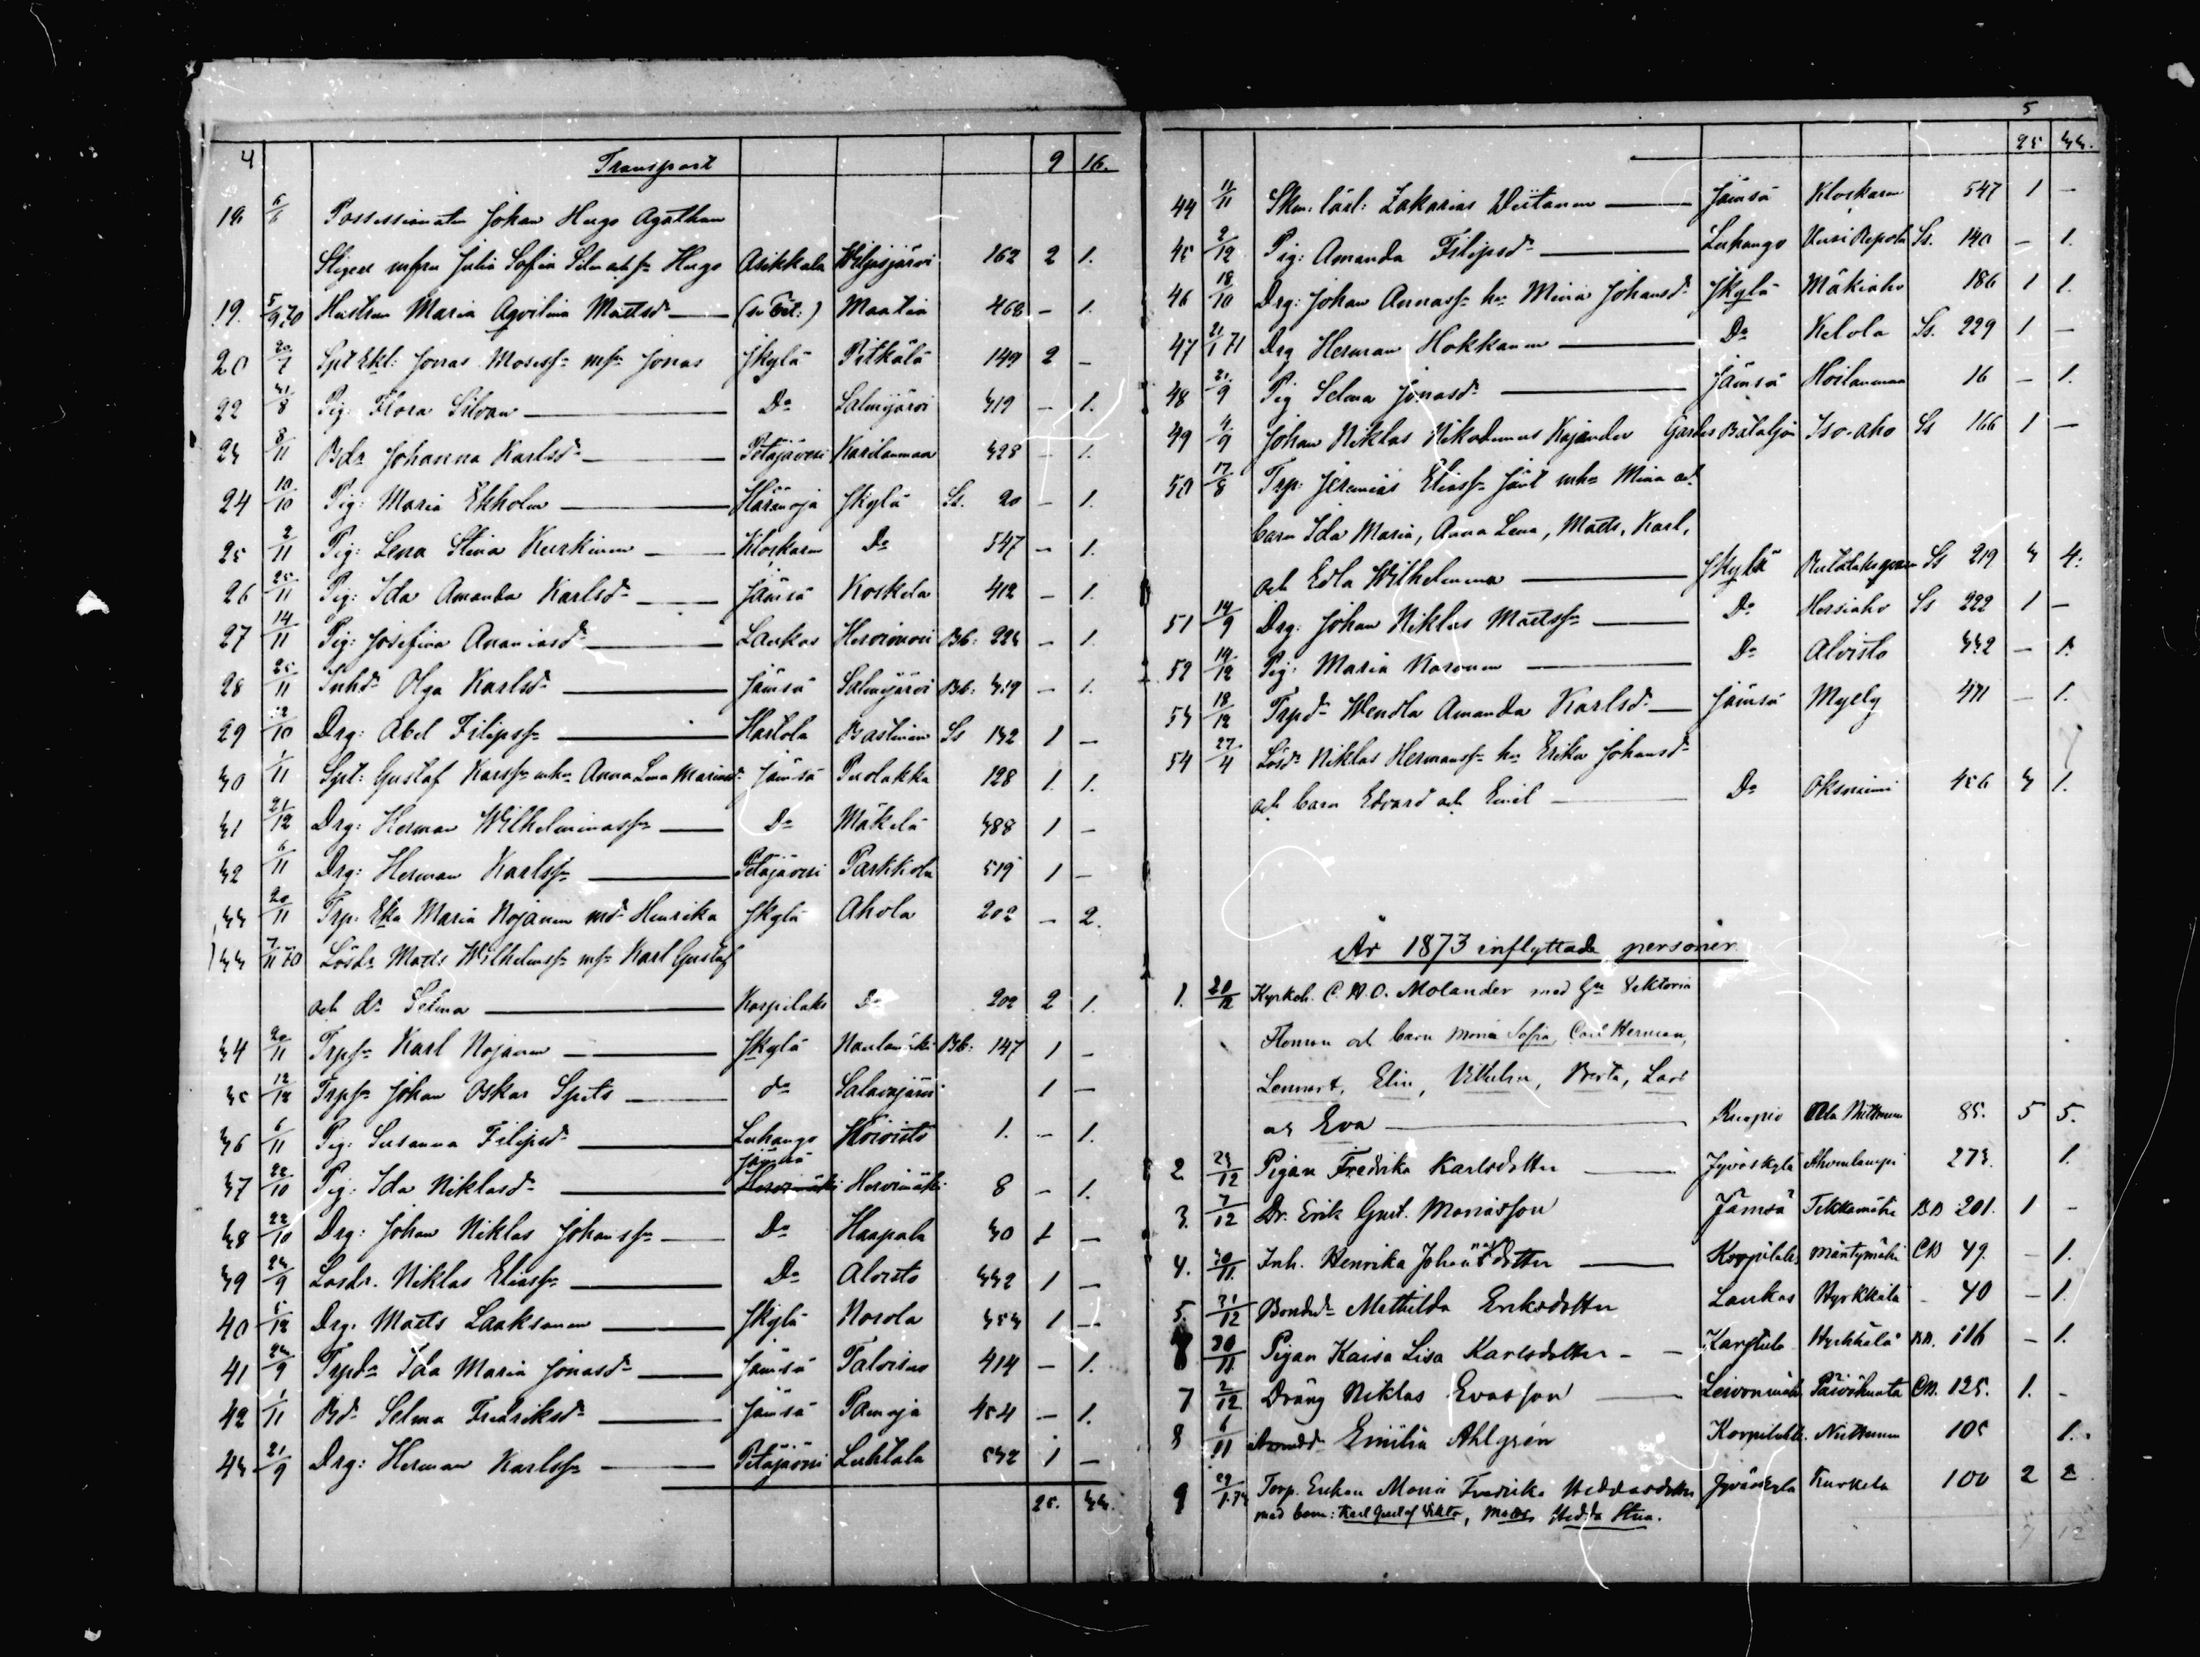 4 Transport 9 16.
18 6/6 Possessionaten Johan Hugo Agathon
Stigell mhru Julia Sofia Hugo Asikkala 162 2 1.
19. 5/9 70 Hustrun Maria Agvilina Mattsd Maatia 468 - 1.
20 20/7 Spt Ekl: Jonas Mosessn Jonas Jkylä Pitkälä 149 2 -
22 31/8 Pig: Flora Silvan Do Salmijärvi 319 - 1.
23 8/11 Bdr Johanna Karlsd Petäjävesi Karilanmaa 328 - 1.
24 10/10 Pig: Maria Ekholm Häränoja Jkylä Ss. 20 - 1.
25 2/11 Pig: Lena Stina Kurkinen Kloskarn Do 547 - 1.
26 25/11 Pig: Ida Amanda Karlsd Jämsä Koskela 412 - 1.
27 14/11 Pig: Josefina Ananiasd Laukas Bb: 223 - 1.
28 25/11 Inhd Olga Karlsd Jämsä Salmijärvi Bb: 319 - 1.
29 12/10 Drg: Abel Filipssn Hartola Bastman Ss 132 1 -
30 1/11 Spt: Gustaf mhu Anna Lena Jämsä Puolakka 128 1. 1.
31 21/12 Drg: Herman Wilhelminassn Do Mäkelä 388 1 -
32 6/11 Drg: Herman Karlssn Petäjävesi Parkkola 519 1 -
33 20/11 Trp: Eka Maria Nojanen md Henrika Jkylä Ahola 202 - 2.
33 7/11 70 Lösdr Matts Wilhelmssn Karl Gustaf
och dr Selma Korpilaks Do 202 2 1.
34 20/11 Trpsn Karl Nojanen Jkylä Bb: 147 1 -
35 12/12 Trpsn Johan Oskar Spets do Salmijärvi 1 -
36 6/11 Pig: Susanna Filipsd Luhango Koivisto 1. - 1.
Jämsä
37 22/10 Pig: Ida Niklasd Hervimäki Hervimäki 8 - 1.
38 22/10 Drg: Johan Niklas Johanssn Do Haapala 30 1 -
39 23/9 Losdr. Niklas Eliassn Do Alvisto 332 1 -
40 5/12 Drg: Matts Laaksonen Jkylä Norola 353 1 -
41 23/9 Trpdr Ida Maria Jonasd Jämsä Talvisno 414 - 1.
42 1/11 Bdr Selma Fredriksd Jämsä 454 - 1.
43 21/9 Drg: Herman Karlssn Petäjävesi Luhtala 532 1 -
25. 33.
5
25 33.
44 11/11 Skm: lärl: Zakarias Wiitanen Jämsä Kloskarn 547 1 -
45 2/12 Pig: Amanda Filipsd Luhango Uusi Repola Ss. 140 - 1.
46 18/10 Drg: Johan Annassn hu Mina Johansd Jkylä Mäkiaho 186 1 1.
47 21/1 71 Drg Herman Hokkanen Do Kelola Ss. 229 1 -
48 21/9 Pig Selma Jonasd Jämsä Hoilanmaa 16 - 1.
49 4/9 Johan Niklas Nikodemus Kajander Gardes Bataljon Iso-aho Ss 166 1 -
50 17/8 Trp: Jeremias Eliassn mhu Mina och
barn Ida Maria, Anna Lena, Matts, Karl,
och Edla Wilhelmina Jkylä Ss 219 3 4.
51 14/9 Drg: Johan Niklas Mattssn Do Hersiaho Ss 222 1 -
52 14/12 Pig: Maria Karonen Do Alvisto 332 - 1.
53 18/12 Trpdr Wendla Amanda Karlsd Jämsä Myely 471 - 1.
54 27/4 Lösdr Niklas Hermanssn hu Erika Johansd
och barn Edvard och Emil Do Oksniemi 456 3 1.
År 1873 inflyttade personer
1. 20/12 Kyrkoh. C. A. O. Molander med fru Viktoria
och barn Maria Sofia, Carl Herman,
Lennart, Elin, Vilhelm, Berta, Lars
o. Eva Kuopio 85. 5 5.
2. 23/12 Pigan Fredrika Karlsdotter Jyväskylä Ahvenlampi 273. 1.
3. 7/12 Dr. Erik Gust. Mariasson Jämsä BB 201. 1 -
4. 30/11 Inh. Henrika Johansdotter Korpilaks Mäntymäki CB 49. - 1.
5. 31/12 Mathilda Eriksdotter Laukas Hyrkkälä 40 - 1.
6 30/11 Pigan Kaisa Lisa Karlsdotter Karstula Hyrkkälä BB. 116 - 1.
7 2/12 Dräng Niklas Evasson Leivonmäki CB. 125. 1. -
8 6/11 Emilia Ahlgrén Korpilaks. Niittunen 105 1.
9 29/1.74 Torp. Enkan Maria Fredrika Heddasdotter Jyväskylä Kurkela 100 2 2
med barn: Karl Gustaf Viktor, Matts, Hedda Stina.
7 12